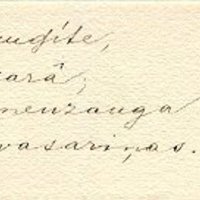 augíte,
carā;
menzauga
vasariņas.